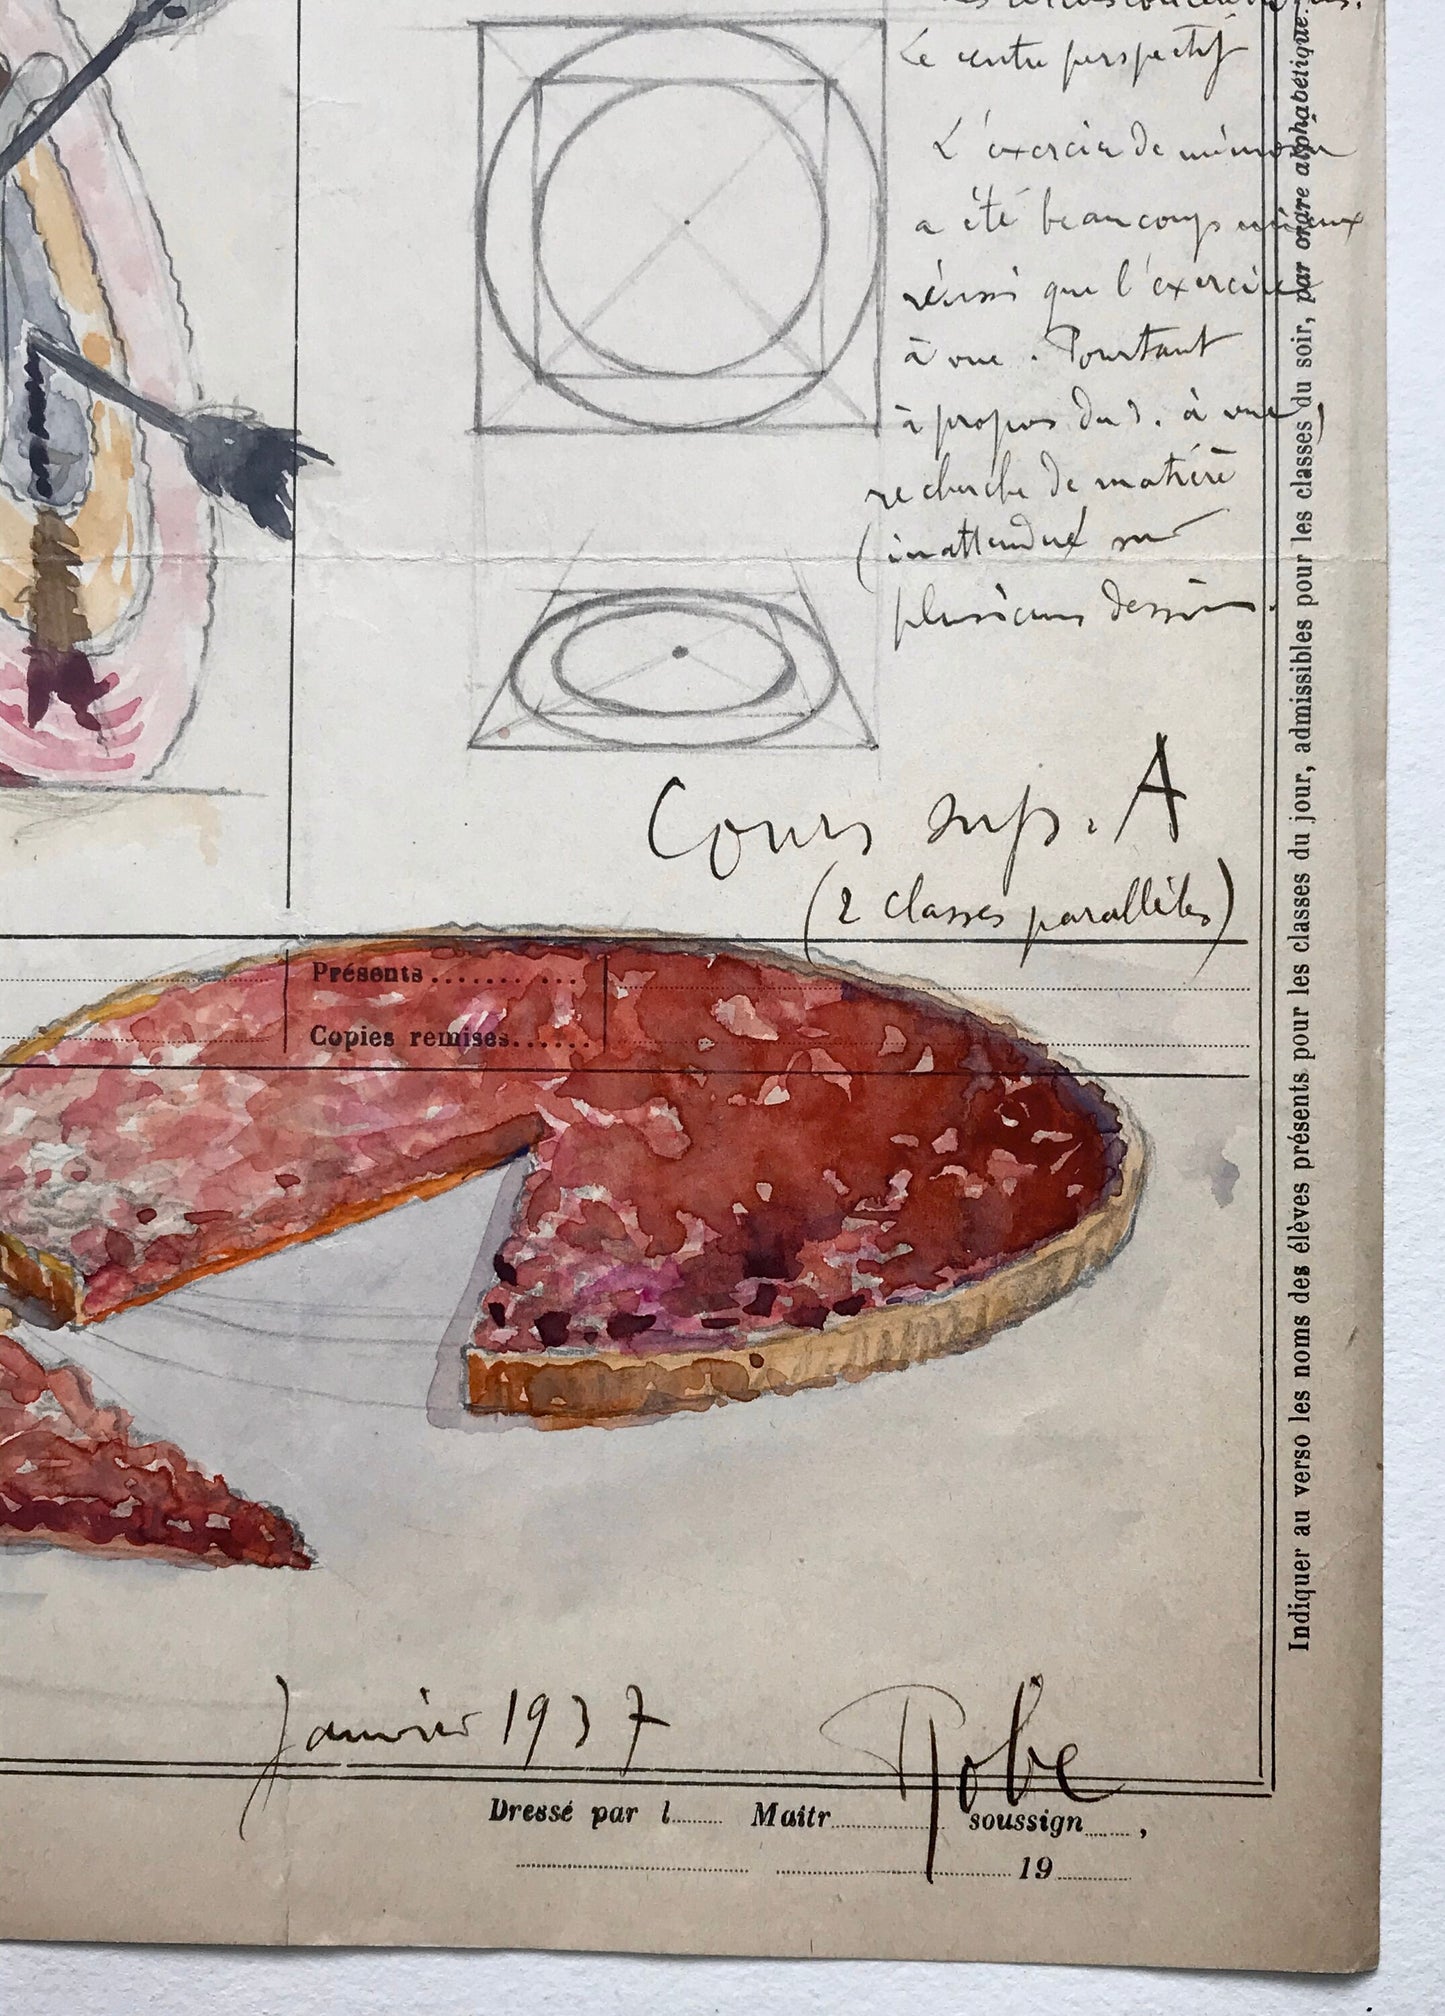 Le centre perspectif
L'exercice de mémoire
a été beaucoup mieux
réussi que l'exercice
à vue. Pourtant
à propos du d. à vue,
recherche de matière
(inattendue sur
plusieurs dessins.
Cours sup. A
(2 classes parallèles)
Présents
Copies remises
Janvier 1937
Robe
Dressé par l Maitr soussign ,
19
Indiquer au verso les noms des élèves présents pour les classes du jour, admissibles pour les classes du soir, par ordre alphabétique.